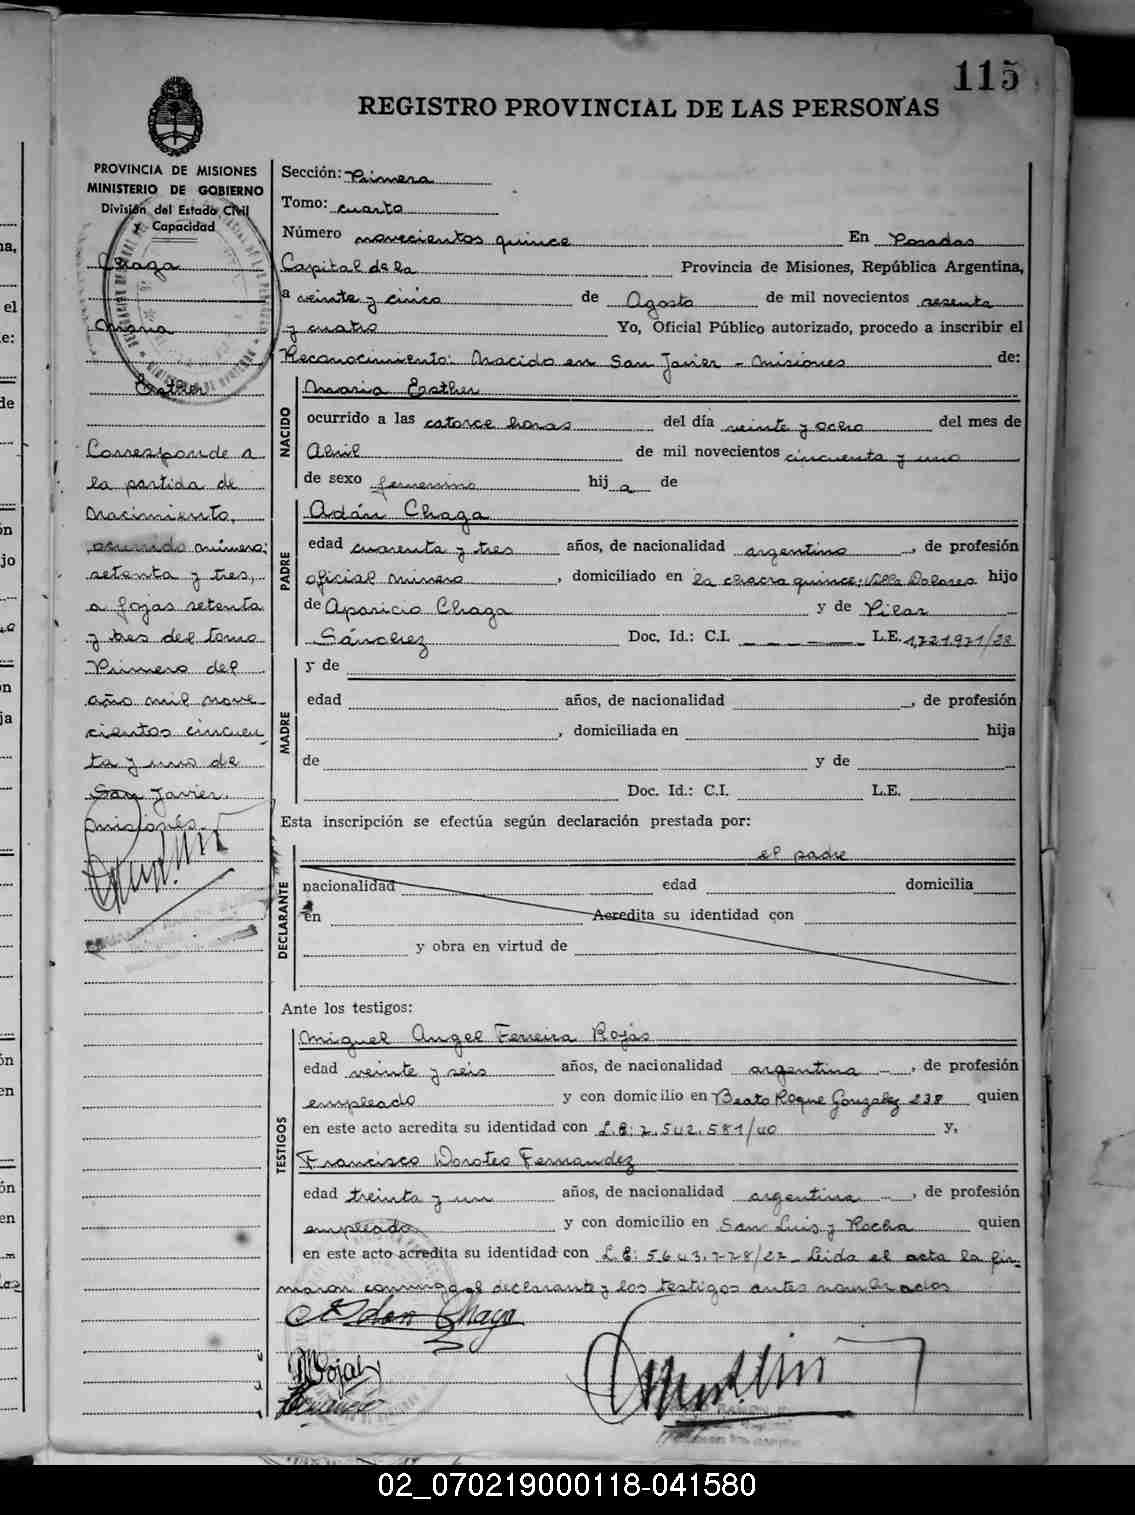 115
REGISTRO PROVINCIAL DE LAS PERSONAS
PROVINCIA DE MISIONES
MINISTERIO DE GOBIERNO
División del Estado Civil
y Capacidad
Chaga
Maria
Esther
Corresponde a
la partida de
Nacimiento,
ocurrido número:
setenta y tres,
a fojas setenta
y tres del tomo
Primero del
año mil nove
cientos cincuen
ta y uno de
San Javier.
Misiones.
Sección: Primera
Tomo: cuarto
Número novecientos quince En Posadas
Capital de la Provincia de Misiones, República Argentina,
a veinte y cinco de Agosto de mil novecientos sesenta
y cuatro Yo, Oficial Público autorizado, procedo a inscribir el
Reconocimiento: Nacido en San Javier - Misiones de:
NACIDO
Maria Esther
ocurrido a las catorce horas del día veinte y ocho del mes de
Abril de mil novecientos cincuenta y uno
de sexo femenino hij a de
PADRE
Adán Chaga
edad cuarenta y tres años, de nacionalidad argentino, de profesión
oficial minero, domiciliado en la chacra quince; Villa Dolores hijo
de Aparicio Chaga y de Pilar
Sánchez Doc. Id.: C.I. L.E. 1.721.971/28
y de
MADRE
edad años, de nacionalidad , de profesión
, domiciliada en hija
de y de
Doc. Id.: C.I. L.E.
Esta inscripción se efectúa según declaración prestada por:
el padre
DECLARANTE
nacionalidad edad domicilia
en Acredita su identidad con
y obra en virtud de
Ante los testigos:
TESTIGOS
Miguel Angel Ferreira Rojas
edad veinte y seis años, de nacionalidad argentina -, de profesión
empleado y con domicilio en Beato Roque Gonzalez 238 quien
en este acto acredita su identidad con L.E: 7.542.581/40 y,
Francisco Doroteo Fernandez
edad treinta y un años, de nacionalidad argentina -, de profesión
empleado y con domicilio en San Luis y Rocha quien
en este acto acredita su identidad con L.E: 5643.778/27- Leida el acta la fir-
maron conmigo el declarante y los testigos antes nombrados
Adan Chaga
02_070219000118-041580